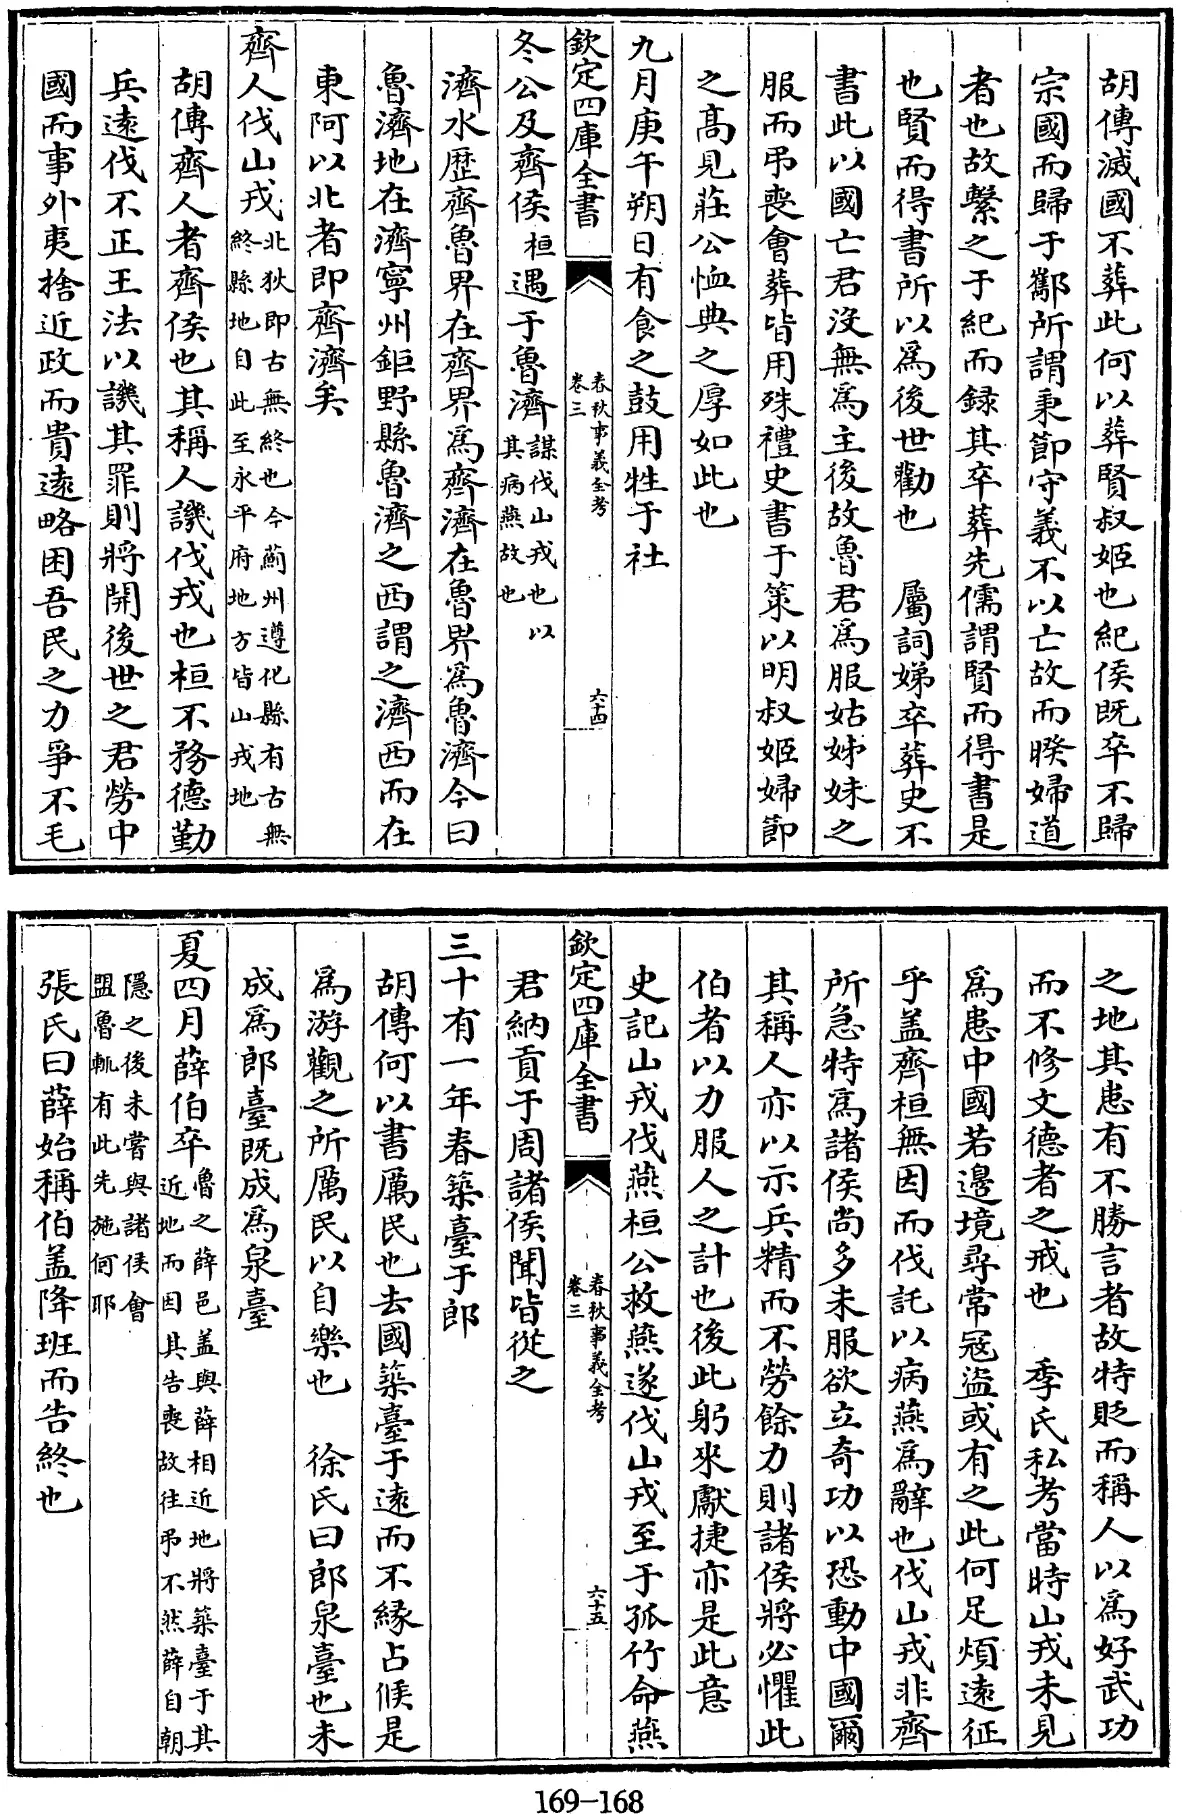 胡傳滅國不葬此何以葬賢叔姬也紀侯既卒不歸
宗國而歸于酅所謂秉節守義不以亡故而睽婦道
者也故繫之于紀而録其卒葬先儒謂賢而得書是
也賢而得書所以爲後世勸也　屬詞娣卒葬史不
書此以國亡君沒無爲主後故魯君爲服姑姊妹之
服而弔喪會葬皆用殊禮史書于策以明叔姬婦節
之髙見莊公恤典之厚如此也
九月庚午朔日有食之鼓用牲于社
欽定四庫全書
春秋事義全考
卷三
六十四
冬公及齊侯桓遇于魯濟謀伐山戎也以
其病燕故也
濟水歷齊魯界在齊界爲齊濟在魯界爲魯濟今曰
魯濟地在濟寧州鉅野縣魯濟之西謂之濟西而在
東阿以北者即齊濟矣
齊人伐山戎北狄即古無終也今薊州遵化縣有古無
終縣地自此至永平府地方皆山戎地
胡傳齊人者齊侯也其稱人譏伐戎也桓不務德勤
兵遠伐不正王法以譏其罪則將開後世之君勞中
國而事外夷捨近政而貴遠略困吾民之力爭不毛
之地其患有不勝言者故特貶而稱人以爲好武功
而不修文德者之戒也　季氏私考當時山戎未見
爲患中國若邊境尋常冦盜或有之此何足煩遠征
乎盖齊桓無因而伐託以病燕爲辭也伐山戎非齊
所急特爲諸侯尚多未服欲立奇功以恐動中國爾
其稱人亦以示兵精而不勞餘力則諸侯將必懼此
伯者以力服人之計也後此躬來獻捷亦是此意
史記山戎伐燕桓公救燕遂伐山戎至于孤竹命燕
欽定四庫全書
春秋事義全考
卷三
六十五
君納貢于周諸侯聞皆從之
三十有一年春築臺于郎
胡傳何以書厲民也去國築臺于遠而不縁占候是
爲游觀之所厲民以自樂也　徐氏曰郎泉臺也未
成爲郎臺既成爲泉臺
夏四月薛伯卒魯之薛邑盖與薛相近地將築臺于其
近地而因其告喪故往弔不然薛自朝
隱之後未嘗與諸侯會
盟魯軌有此先施何耶
張氏曰薛始稱伯盖降班而告終也
169-168